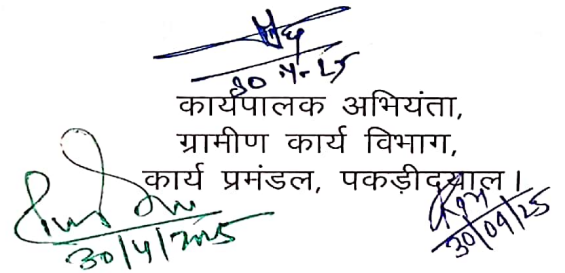 30-4-25
कार्यपालक अभियंता,
ग्रामीण कार्य विभाग,
कार्य प्रमंडल, पकड़ीदयाल।
30/4/2025
30/04/25